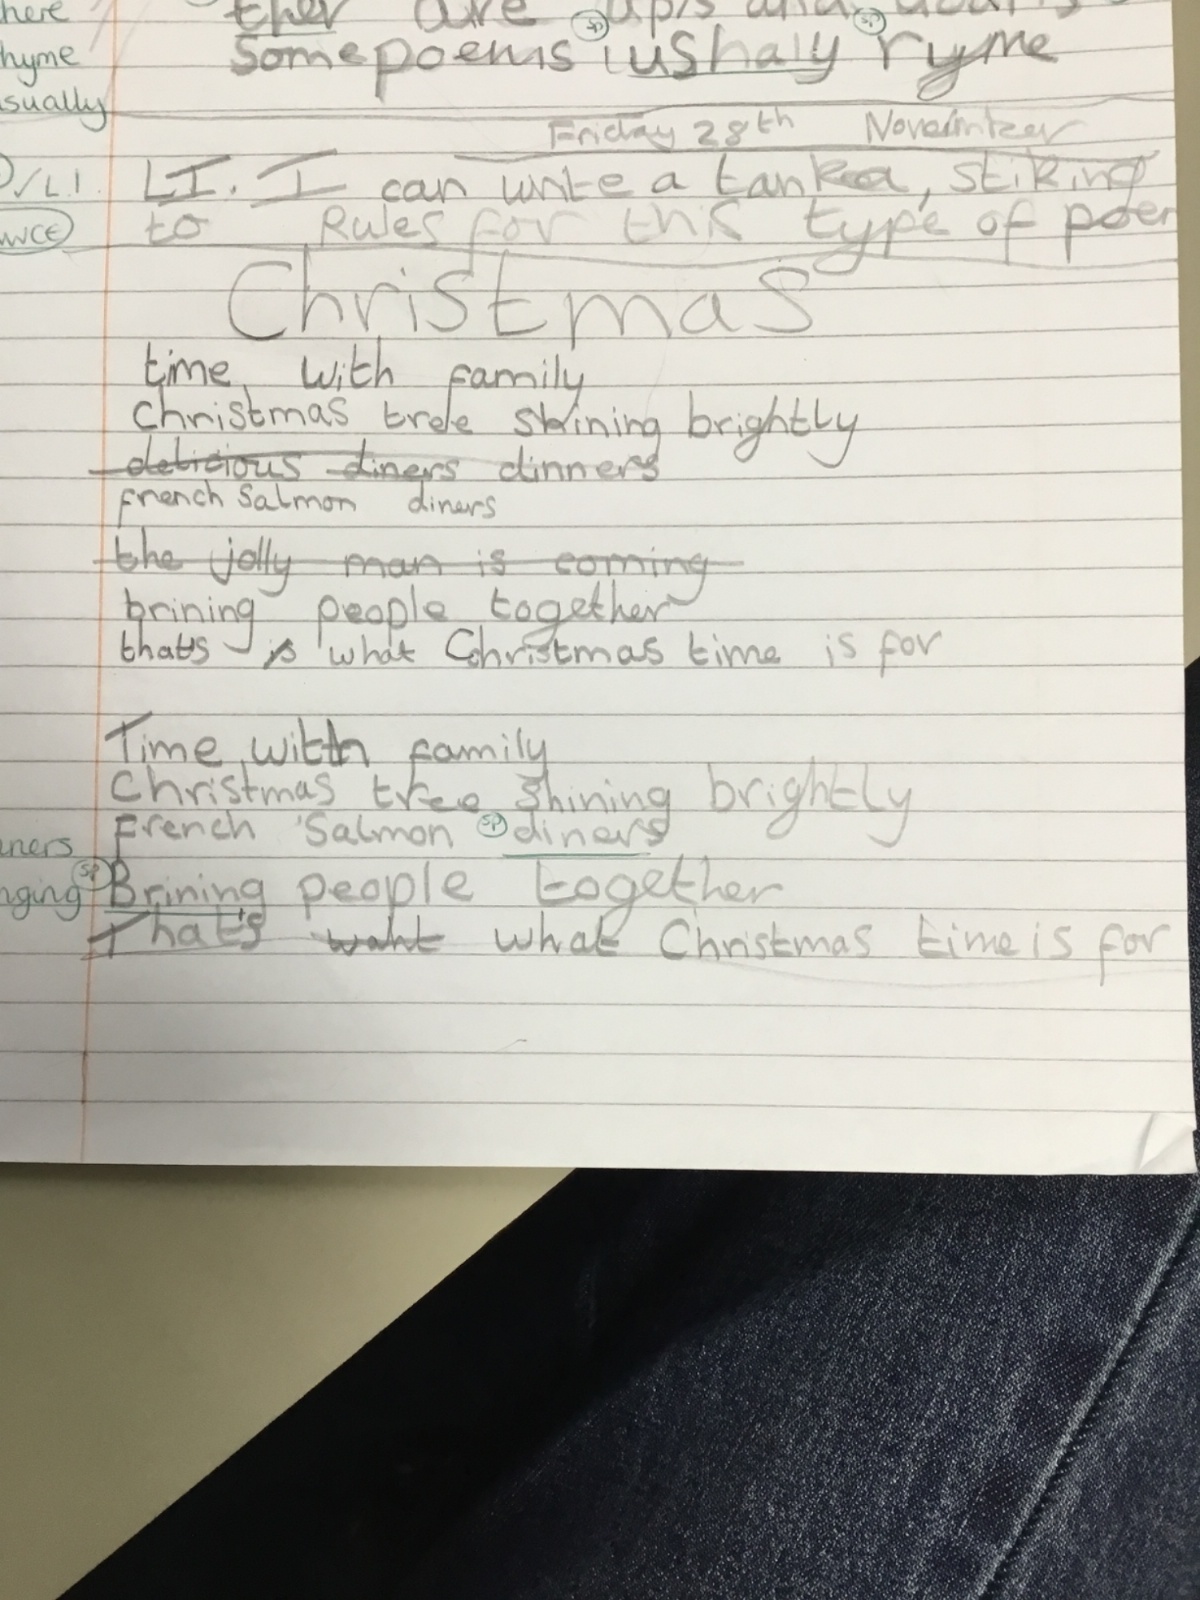 here
ther are ups and
sp sp
hyme Some poems iushaly ryme
sually
Friday 28th November
/L.I. LI. I can write a tanka, stiking
WCE to Rules for this type of poem
Christmas
time with family
Christmas tree shining brightly
delicious diners dinners
french Salmon diners
the jolly man is coming
brining people together
thats is what Christmas time is for
Time with family
Christmas tree shining brightly
French Salmon sp diners
ners
nging sp Brining people together
That's waht what Christmas time is for